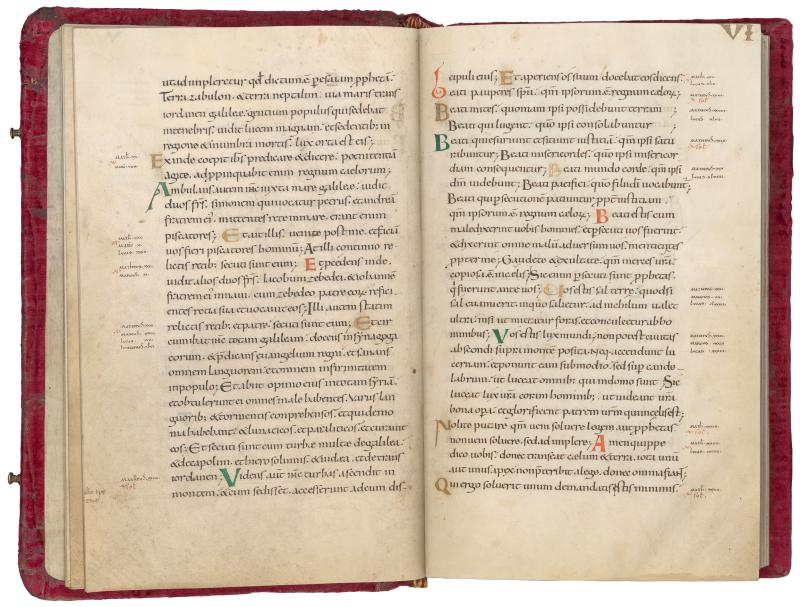 ut adimpleretur qđ dictum ē per esaiam pphetam.
Terra zabulon. & terra neptalim. uia maris trans
iordanen galileae. gentium populus qui sedebat
in tenebris. uidit lucem magnam. et sedentib; in
regione & in umbra mortis. lux orta est eis;
Exinde coepit ihs predicare & dicere. poenitentiam
agite. adppinquabit enim regnum caelorum;
Ambulans autem ihc iuxta mare galileae. uidit
duos frs. simonem qui uocatur petrus. et andream
fratrem ei; mittentes rete in mare. erant enim
piscatores; Et ait illis. uenite post me. et faciam
uos fieri piscatores hominum; At illi continuo re
lictis retib; secuti sunt eum; Et pcedens inde.
uidit alios duos frs. iacobum zebedei. & iohannem
fratrem ei; in naui. cum zebedeo patre eorum. refici
entes retia sua. et uocauit eos; Illi autem statim
relictis retib; et patre. secuti sunt eum; Et cir
cumibat ihc totam galileam. docens in synagogis
eorum. & pdicans euangelium regni. et sanans
omnem languorem. et omnem infirmitatem
in populo; Et abiit opinio eius in totam syriam.
et obtulerunt ei omnes male habentes. uariis lan
guorib; & tormentis comprehensos. et qui demo
nia habebant. & lunaticos. et paraliticos. et curauit
eos; Et secuti sunt eum turbae multae de galilea.
& decapolim. et hierosolimis. & iudaea. et de trans
iordanen; Videns aut ihc turbas. ascendit in
montem. & cum sedisset. accesserunt ad eum dis-
VI
cipuli eius; Et aperiens os suum. docebat eos dicens.
Beati pauperes spu. qm ipsorum ē regnum caelorum;
Beati mites. quoniam ipsi possidebunt terram;
Beati qui lugent. quo ipsi consolabuntur;
Beati qui esuriunt et sitiunt iustitiam. qm ipsi satu
rabuntur; Beati misericordes. quo ipsi misericor
diam consequentur; Beati mundo corde. qm ipsi
dm uidebunt; Beati pacifici. quo filii di uocabunt;
Beati qui persecutionem patiuntur ppt iustitiam.
qm ipsorum ē regnum caelorum; Beati estis cum
maledixerint uobis homines. et psecuti uos fuerint.
& dixerint omne malum aduersum uos. mentientes
ppter me; Gaudete & exultate. qm merces uestra
copiosa ē in caelis; Sic enim psecuti sunt pphetas.
q fuerunt ante uos; Vos estis sal terrae. quod si
sal euanuerit. in quo salietur. ad nihilum ualet
ultra. nisi ut mittatur foras. et conculcetur ab ho
minibus; Vos estis lux mundi; non potest ciuitas
abscondi supra montem posita. neq; accendunt lu
cernam. et ponunt eam sub modio. sed sup cande
labrum. ut luceat omnib; qui in domo sunt; Sic
luceat lux ura coram hominib; ut uideant ura
bona opa. et glorificent patrem urm qui in celis est;
Nolite putare qm ueni soluere legem aut pphetas.
non ueni soluere. sed adimplere; Amen quippe
dico uobis. donec transeat caelum & terra. iota unum
aut unus apex non pteribit a lege. donec omnia fiant;
Qui ergo soluerit unum de mandatis istis minimis.